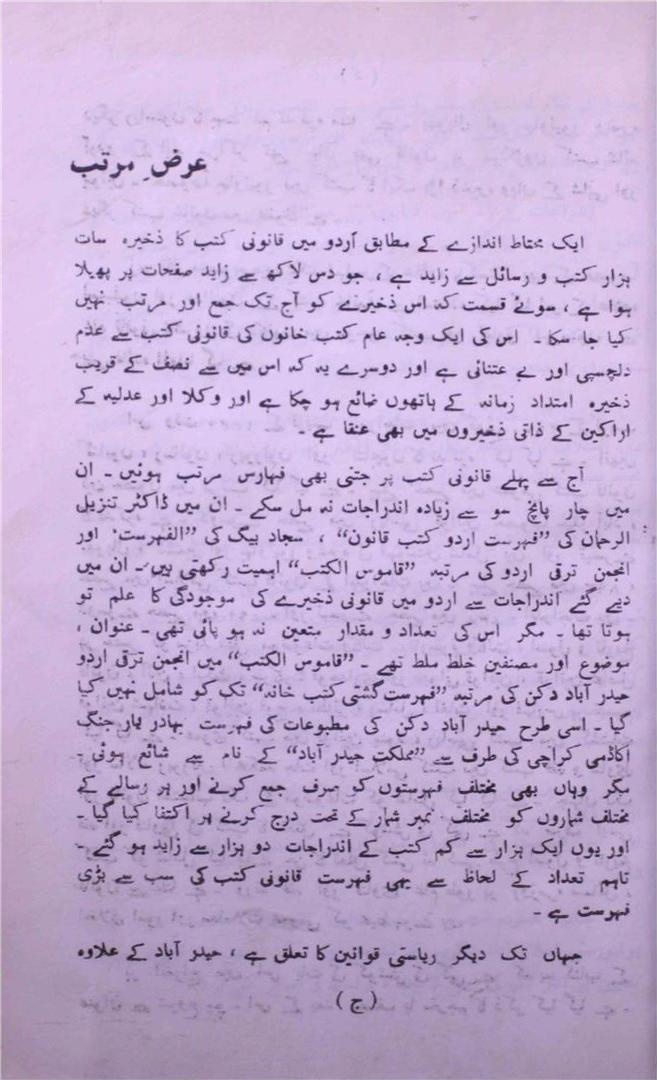 عرض مرتب
ایک محتاط اندازے کے مطابق اُردو میں قانونی کتب کا ذخیرہ سات
ہزار کتب و رسائل سے زاید ہے ، جو دس لاکھ سے زاید صفحات پر پھیلا
ہوا ہے ، سوئے قسمت کہ اس ذخیرے کو آج تک جمع اور مرتب نہیں
کیا جا سکا ۔ اس کی ایک وجہ عام کتب خانوں کی قانونی کتب سے عدم
دلچسپی اور بے اعتنائی ہے اور دوسرے یہ کہ اس میں سے نصف کے قریب
ذخیرہ امتداد زمانہ کے ہاتھوں ضائع ہو چکا ہے اور وکلا اور عدلیہ کے
اراکین کے ذاتی ذخیروں میں بھی عنقا ہے ۔
آج سے پہلے قانونی کتب پر جتنی بھی فہارس مرتب ہوئیں ۔ ان
میں چار پانچ سو سے زیادہ اندراجات نہ مل سکے ۔ ان میں ڈاکٹر تنزیل
الرحمان کی ”فہرست اردو کتب قانون“ ، سجاد بیگ کی ”الفہرست“ اور
انجمن ترقی اردو کی مرتبہ ”قاموس الکتب“ اہمیت رکھتی ہیں ۔ ان میں
دیے گئے اندراجات سے اردو میں قانونی ذخیرے کی موجودگی کا علم تو
ہوتا تھا ۔ مگر اس کی تعداد و مقدار متعین نہ ہو پائی تھی ۔ عنوان ،
موضوع اور مصنفین خلط ملط تھے ۔ ”قاموس الکتب“ میں انجمن ترقی اردو
حیدر آباد دکن کی مرتبہ ”فہرست گشتی کتب خانہ“ تک کو شامل نہیں کیا
گیا ۔ اسی طرح حیدر آباد دکن کی مطبوعات کی فہرست بہادر یار جنگ
اکاڈمی کراچی کی طرف سے ”مملکت حیدر آباد“ کے نام سے شائع ہوئی ۔
مگر وہاں بھی مختلف فہرستوں کو صرف جمع کرنے اور ہر رسالے کے
مختلف شماروں کو مختلف نمبر شمار کے تحت درج کرنے پر اکتفا کیا گیا ۔
اور یوں ایک ہزار سے کم کتب کے اندراجات دو ہزار سے زاید ہو گئے ۔
تاہم تعداد کے لحاظ سے یہی فہرست قانونی کتب کی سب سے بڑی
فہرست ہے ۔
جہاں تک دیگر ریاستی قوانین کا تعلق ہے ، حیدر آباد کے علاوہ
(ج)